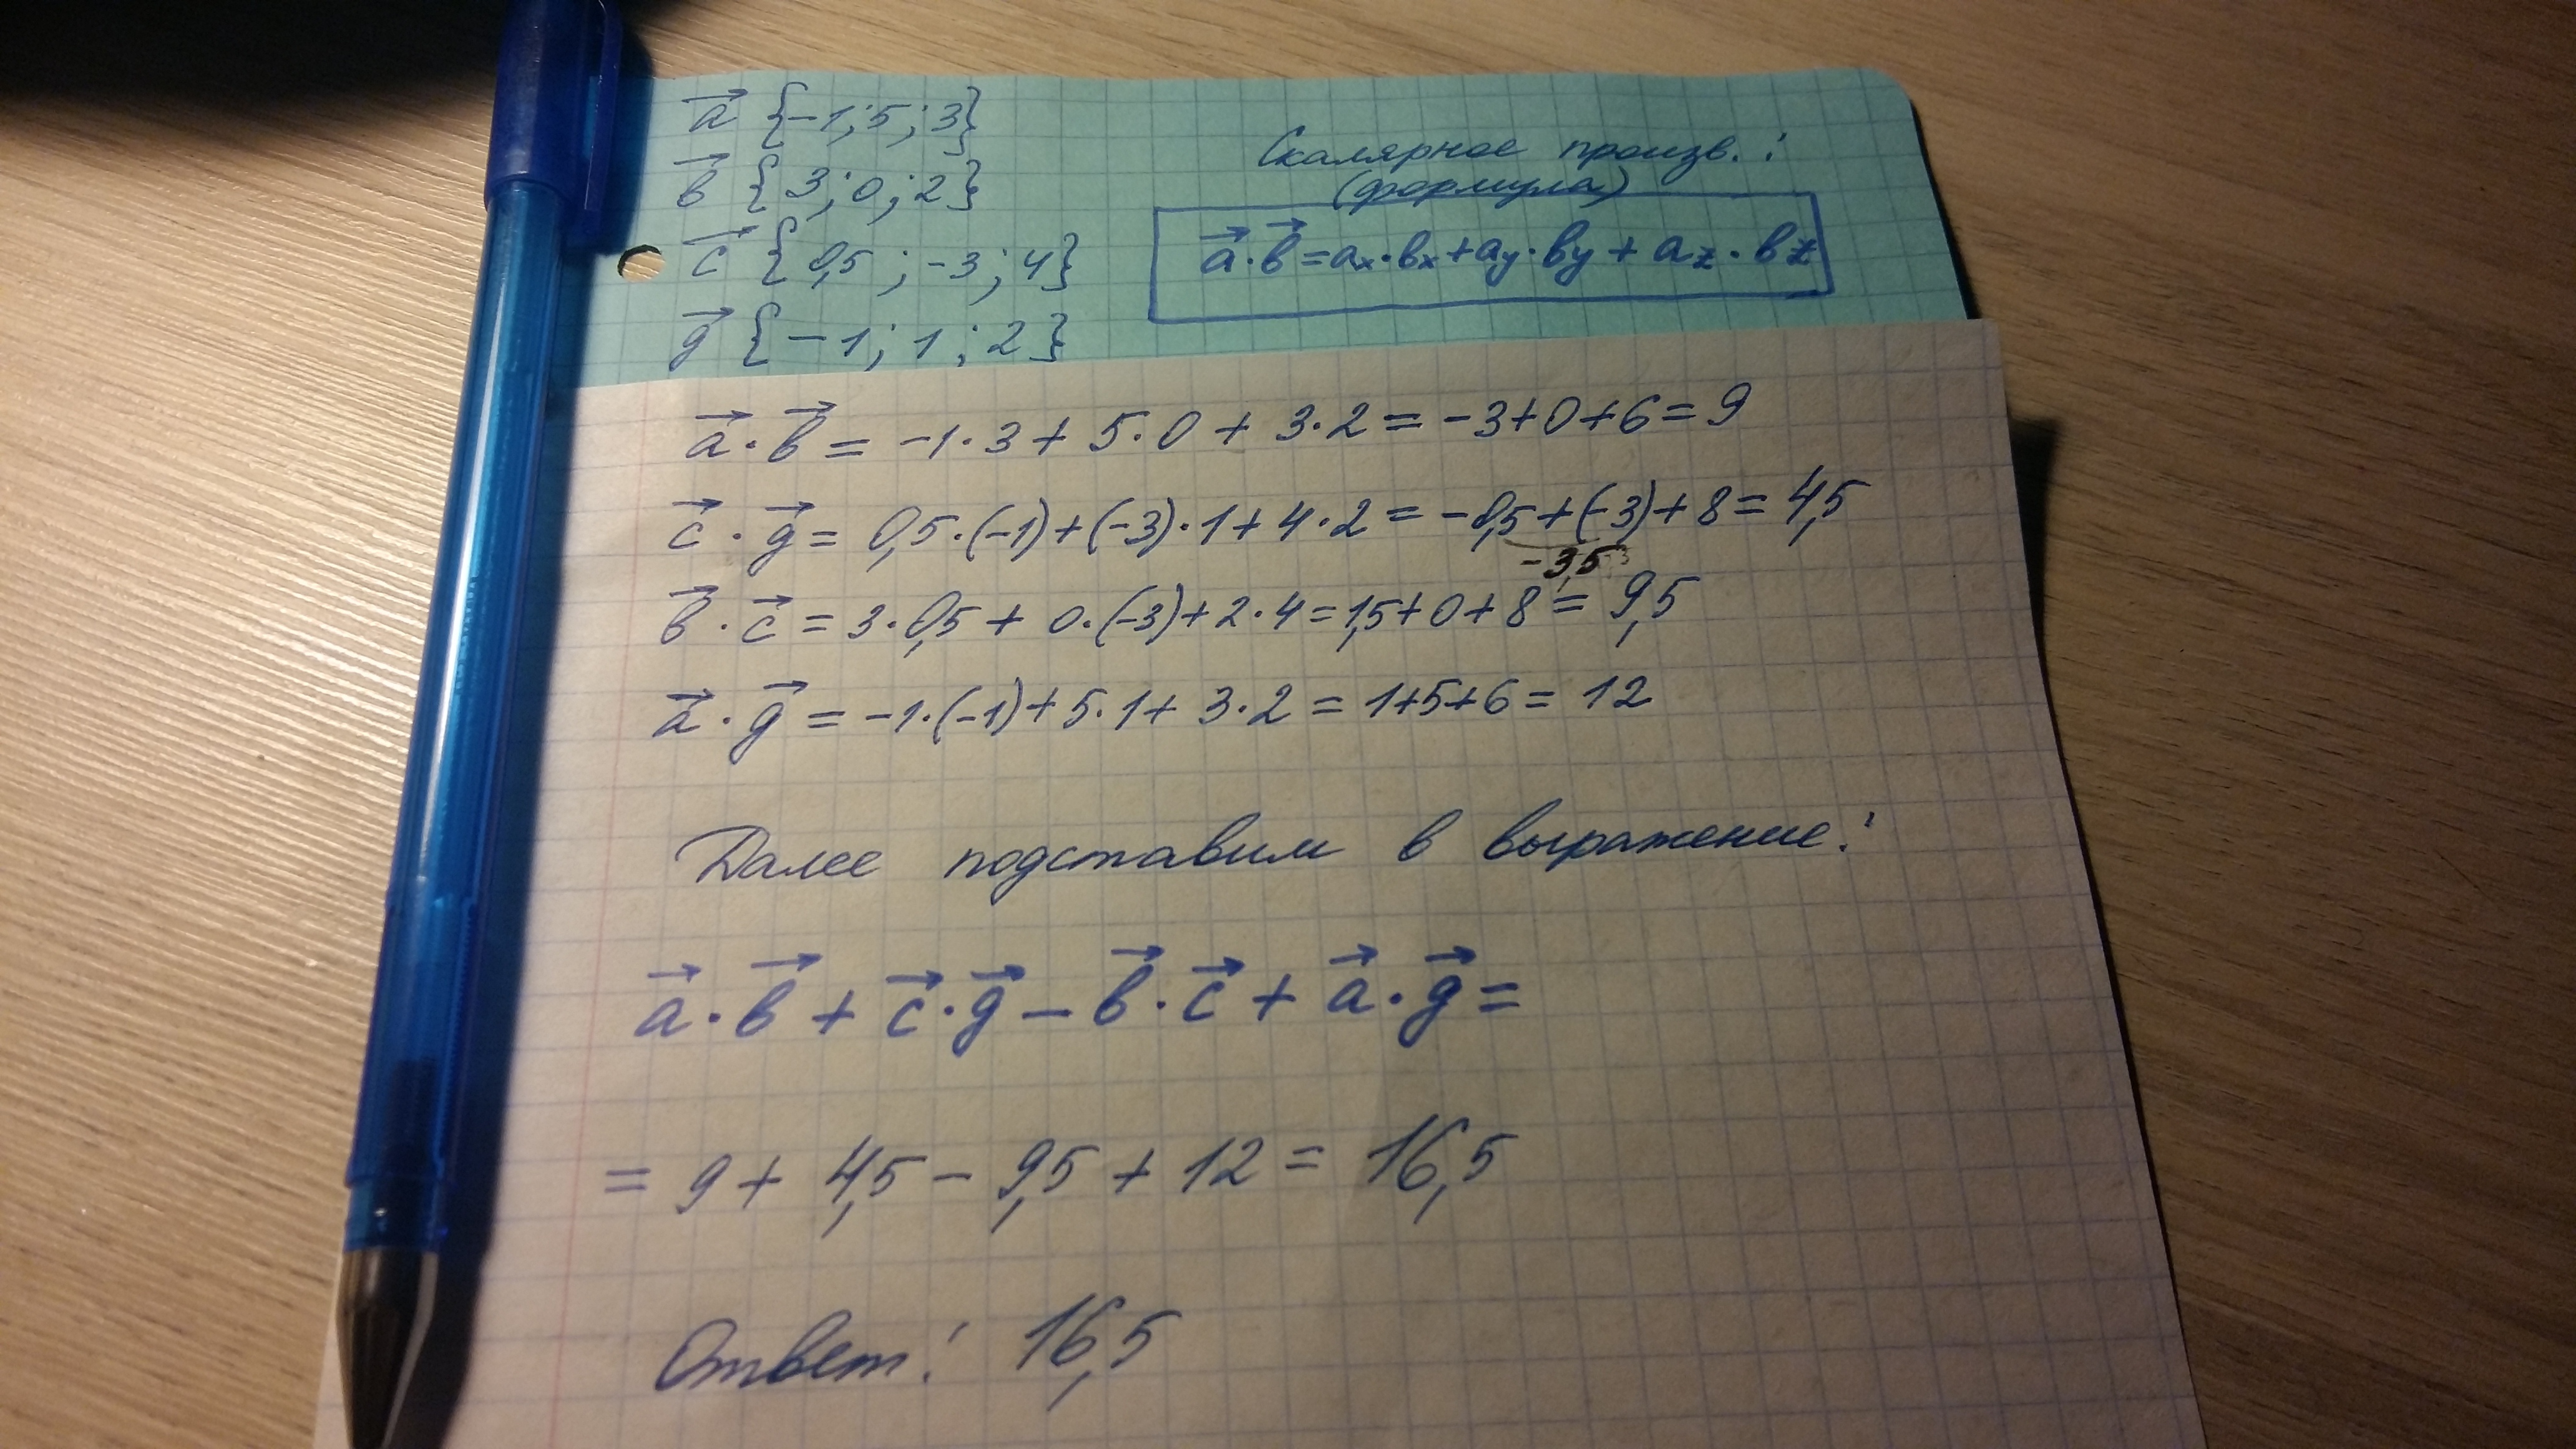 a⃗ {-1; 5; 3}
b⃗ {3; 0; 2}
c⃗ {0,5; -3; 4}
g⃗ {-1; 1; 2}
Скалярное произв.:
(формула)
a⃗·b⃗=aₓ·bₓ+ay·by+az·bz
a⃗·b⃗ = -1·3+5·0+3·2=-3+0+6=9
c⃗·g⃗ = 0,5·(-1)+(-3)·1+4·2=-0,5+(-3)+8=4,5
-3,5
b⃗·c⃗=3·0,5+0·(-3)+2·4=1,5+0+8=9,5
a⃗·g⃗=-1·(-1)+5·1+3·2=1+5+6=12
Далее подставим в выражение:
a⃗·b⃗+c⃗·g⃗-b⃗·c⃗+a⃗·g⃗=
=9+4,5-9,5+12=16,5
Ответ: 16,5